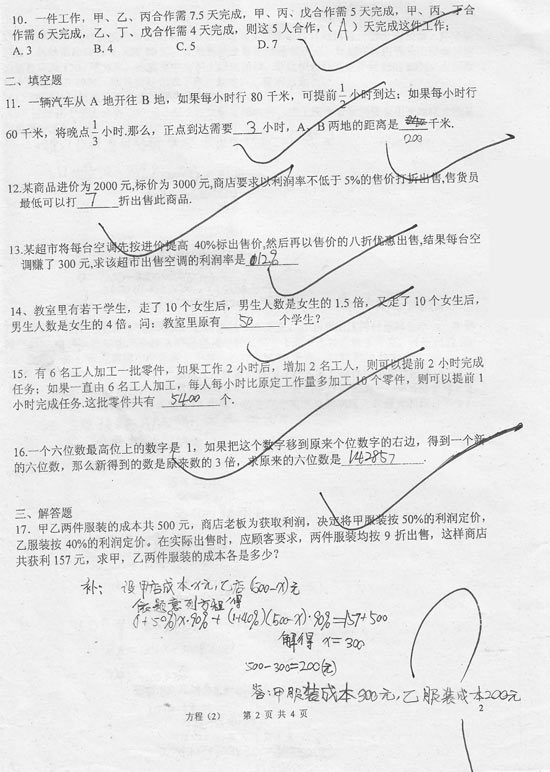 10．一件工作，甲、乙、丙合作需 7.5 天完成，甲、丙、戊合作需 5 天完成，甲、丙、丁合
作需 6 天完成，乙、丁、戊合作需 4 天完成，则这 5 人合作，（ A ）天完成这件工作；
A. 3 B. 4 C. 5 D. 7
二、填空题
11．一辆汽车从 A 地开往 B 地，如果每小时行 80 千米，可提前 1/2 小时到达；如果每小时行
60 千米，将晚点 1/3 小时.那么，正点到达需要 3 小时，A、B 两地的距离是 千米.
200
12.某商品进价为 2000 元,标价为 3000 元,商店要求以利润率不低于 5%的售价打折出售,售货员
最低可以打 7 折出售此商品.
13.某超市将每台空调先按进价提高 40%标出售价,然后再以售价的八折优惠出售,结果每台空
调赚了 300 元,求该超市出售空调的利润率是 12%
14、教室里有若干学生，走了 10 个女生后，男生人数是女生的 1.5 倍，又走了 10 个女生后，
男生人数是女生的 4 倍。问：教室里原有 50 个学生？
15．有 6 名工人加工一批零件，如果工作 2 小时后，增加 2 名工人，则可以提前 2 小时完成
任务；如果一直由 6 名工人加工，每人每小时比原定工作量多加工 10 个零件，则可以提前 1
小时完成任务.这批零件共有 5400 个.
16.一个六位数最高位上的数字是 1，如果把这个数字移到原来个位数字的右边，得到一个新
的六位数，那么新得到的数是原来数的 3 倍，求原来的六位数是 142857 .
三、解答题
17．甲乙两件服装的成本共 500 元，商店老板为获取利润，决定将甲服装按 50%的利润定价，
乙服装按 40%的利润定价。在实际出售时，应顾客要求，两件服装均按 9 折出售，这样商店
共获利 157 元，求甲，乙两件服装的成本各是多少？
补： 设甲店成本x元,乙店(500-x)元
依题意列方程得
(1+50%)x·90%+(1+40%)(500-x)·90%=157+500
解得 x=300
500-300=200(元)
答:甲服装成本300元,乙服装成本200元
方程（2） 第 2 页 共 4 页
2